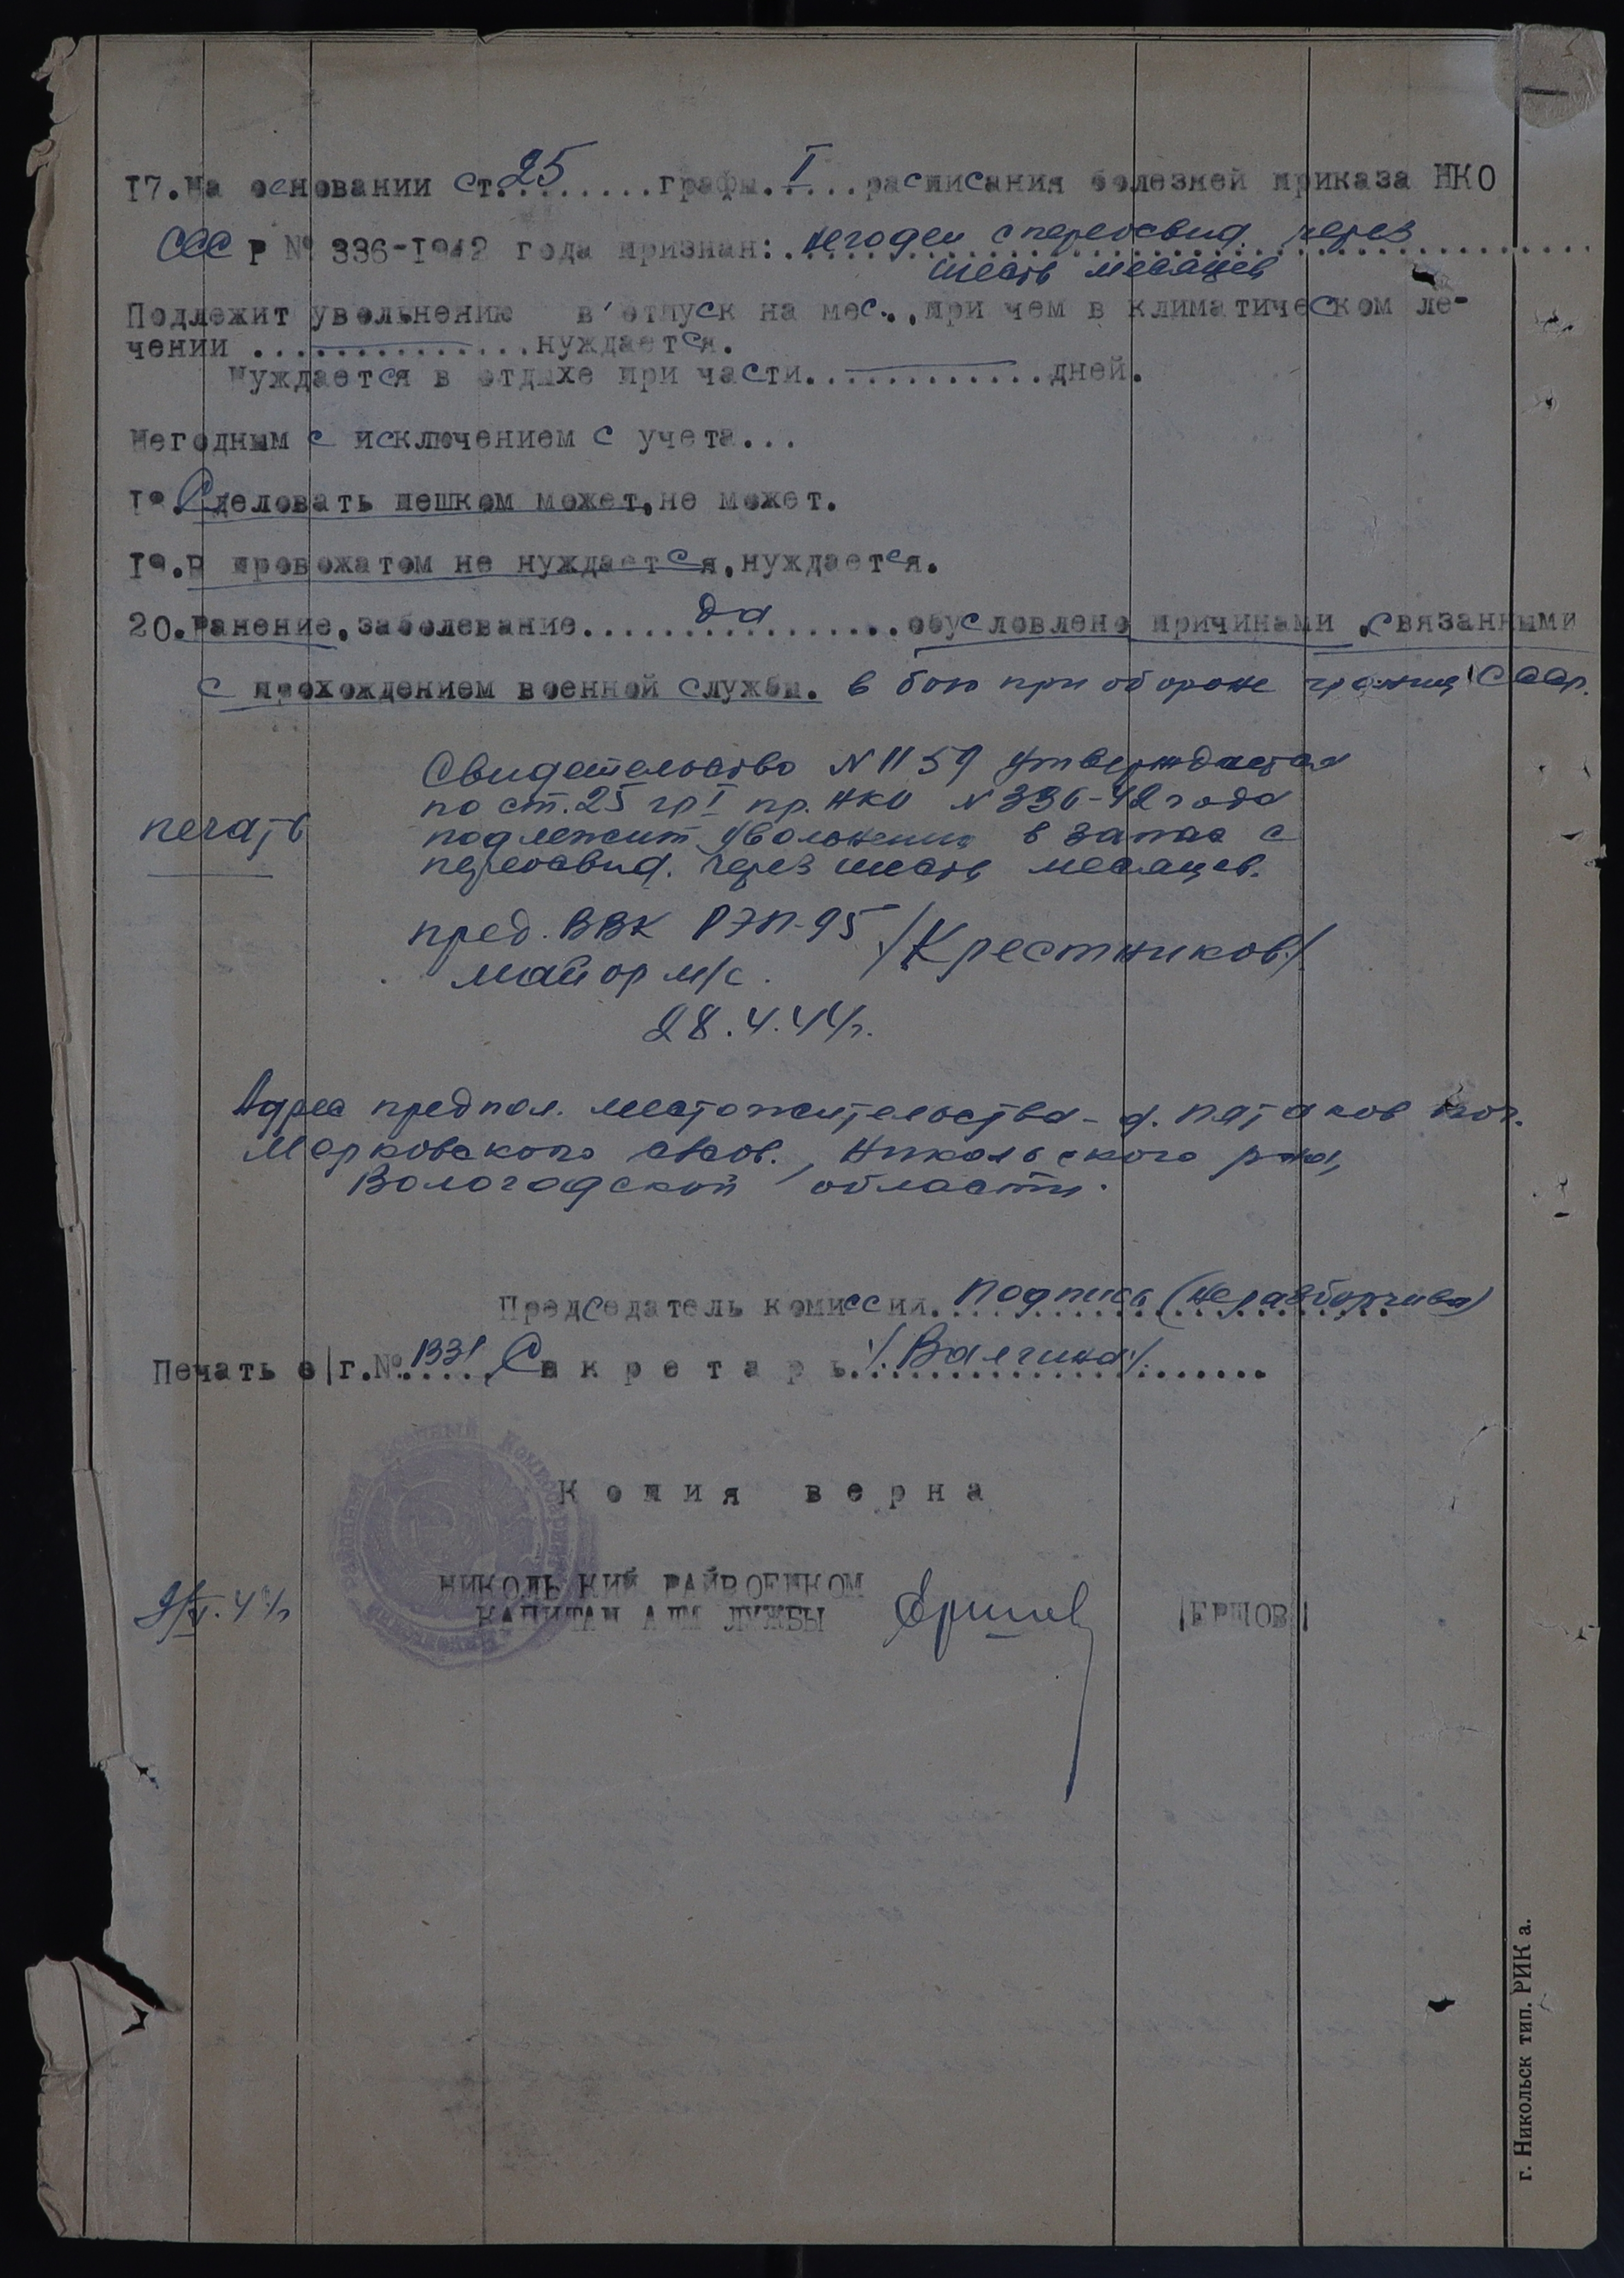 17.На основании ст.25........графы.I...расписания болезней приказа НКО
СССР № 336-1942 года признан: негоден с переосвид. через
шесть месяцев
Подлежит увольнению в отпуск на мес..,при чем в климатическом ле-
чении ..............нуждается.
Нуждается в отдыхе при части.............дней.
Негодным с исключением с учета...
18.Следовать пешком может,не может.
19.В провожатом не нуждается,нуждается.
20.Ранение,заболевание.......да.........обусловлено причинами ,связанными
с прохождением военной службы. в бою при обороне границ СССР.
Свидетельство N 1159 утверждается
по ст. 25 гр I пр. НКО N 336-42 года
печать
подлежит увольнению в запас с
переосвид. через шесть месяцев.
пред. ВВК РЭП-95 /Крестников/
майор м/с.
28.4.44г.
Адрес предпол. местожительства - д. Пятаков поч.
Марковского с/сов., Никольского р-на,
Вологодской области.
Председатель комиссии. подпись (неразборчива)
Печать э/г.№.1331. Секретарь./.Валгина/.
Районный Военный Комиссариат
Копия верна
НИКОЛЬСКИЙ РАЙВОЕНКОМ
9/V.44г
КАПИТАН АДМ СЛУЖБЫ Ершов /ЕРШОВ/
г. Никольск тип. РИК а.